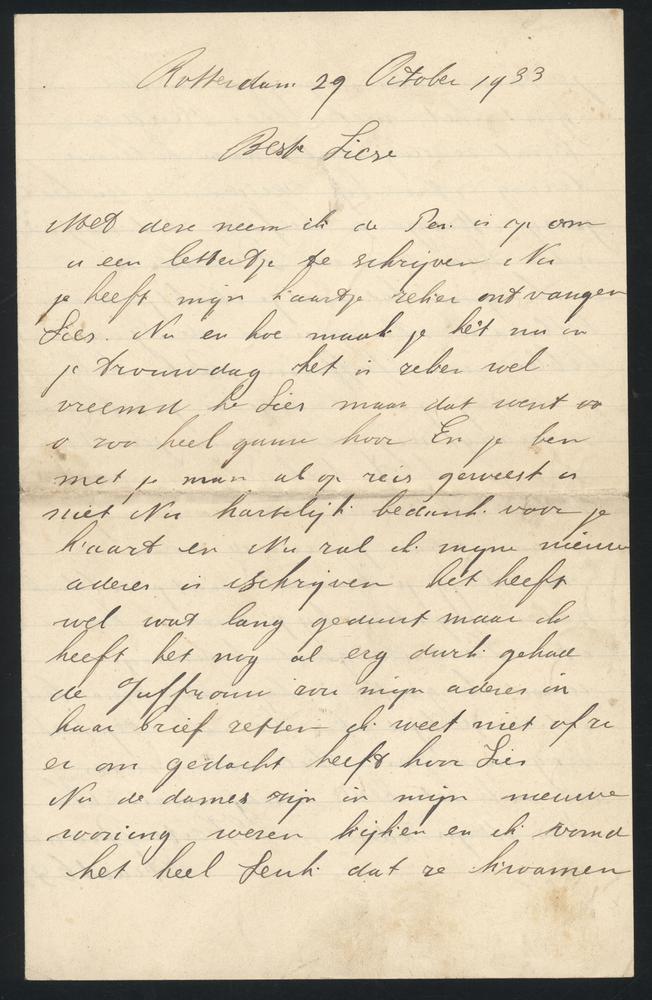 Rotterdam 29 October 1933
Beste Liese
Met deze neem ik de Pen is op om
u een lettertje te schrijven Nu
je heeft mijn kaartje zeker ontvangen
Lies. Nu en hoe maak je het nu in
je trouwdag het is zeker wel
vreemd he Lies maar dat went zo
o zoo heel gauw hoor En je ben
met je man al op reis geweest is
niet Nu hartelijk bedank voor je
kaart en Nu zal ik mijne nieuw
aders is schrijven het heeft
wel wat lang geduurt maar ik
heeft het nog al erg durk gehad
de Juffrouw zou mijn aders in
haar brief zetten ik weet niet of ze
er om gedacht heeft hoor Lies
Nu de dames zijn in mijn nieuwe
woning wezen kijken en ik vomd
het heel Leuk dat ze kwamen